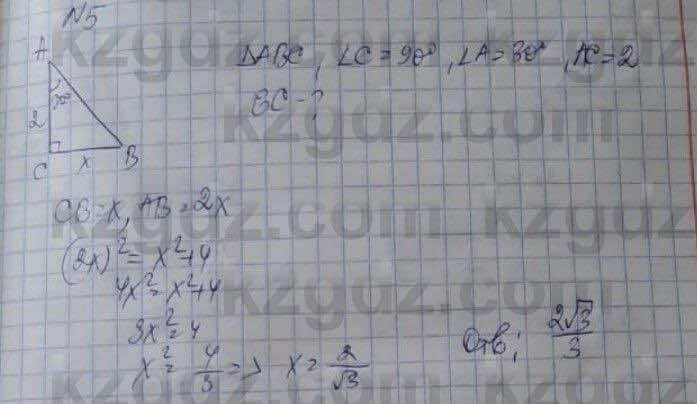 N5
A
30°
2
C
x
B
ΔABC, ∠C=90°, ∠A=30°, AC=2
BC-?
CB=x, AB=2x
(2x)²=x²+4
4x²=x²+4
3x²=4
x²=4/3 => x=2/√3
Отв; 2√3/3
kzgdz.com
kzgdz.com
kzgdz.com
kzgdz.com
kzgdz.com
kzgdz.com